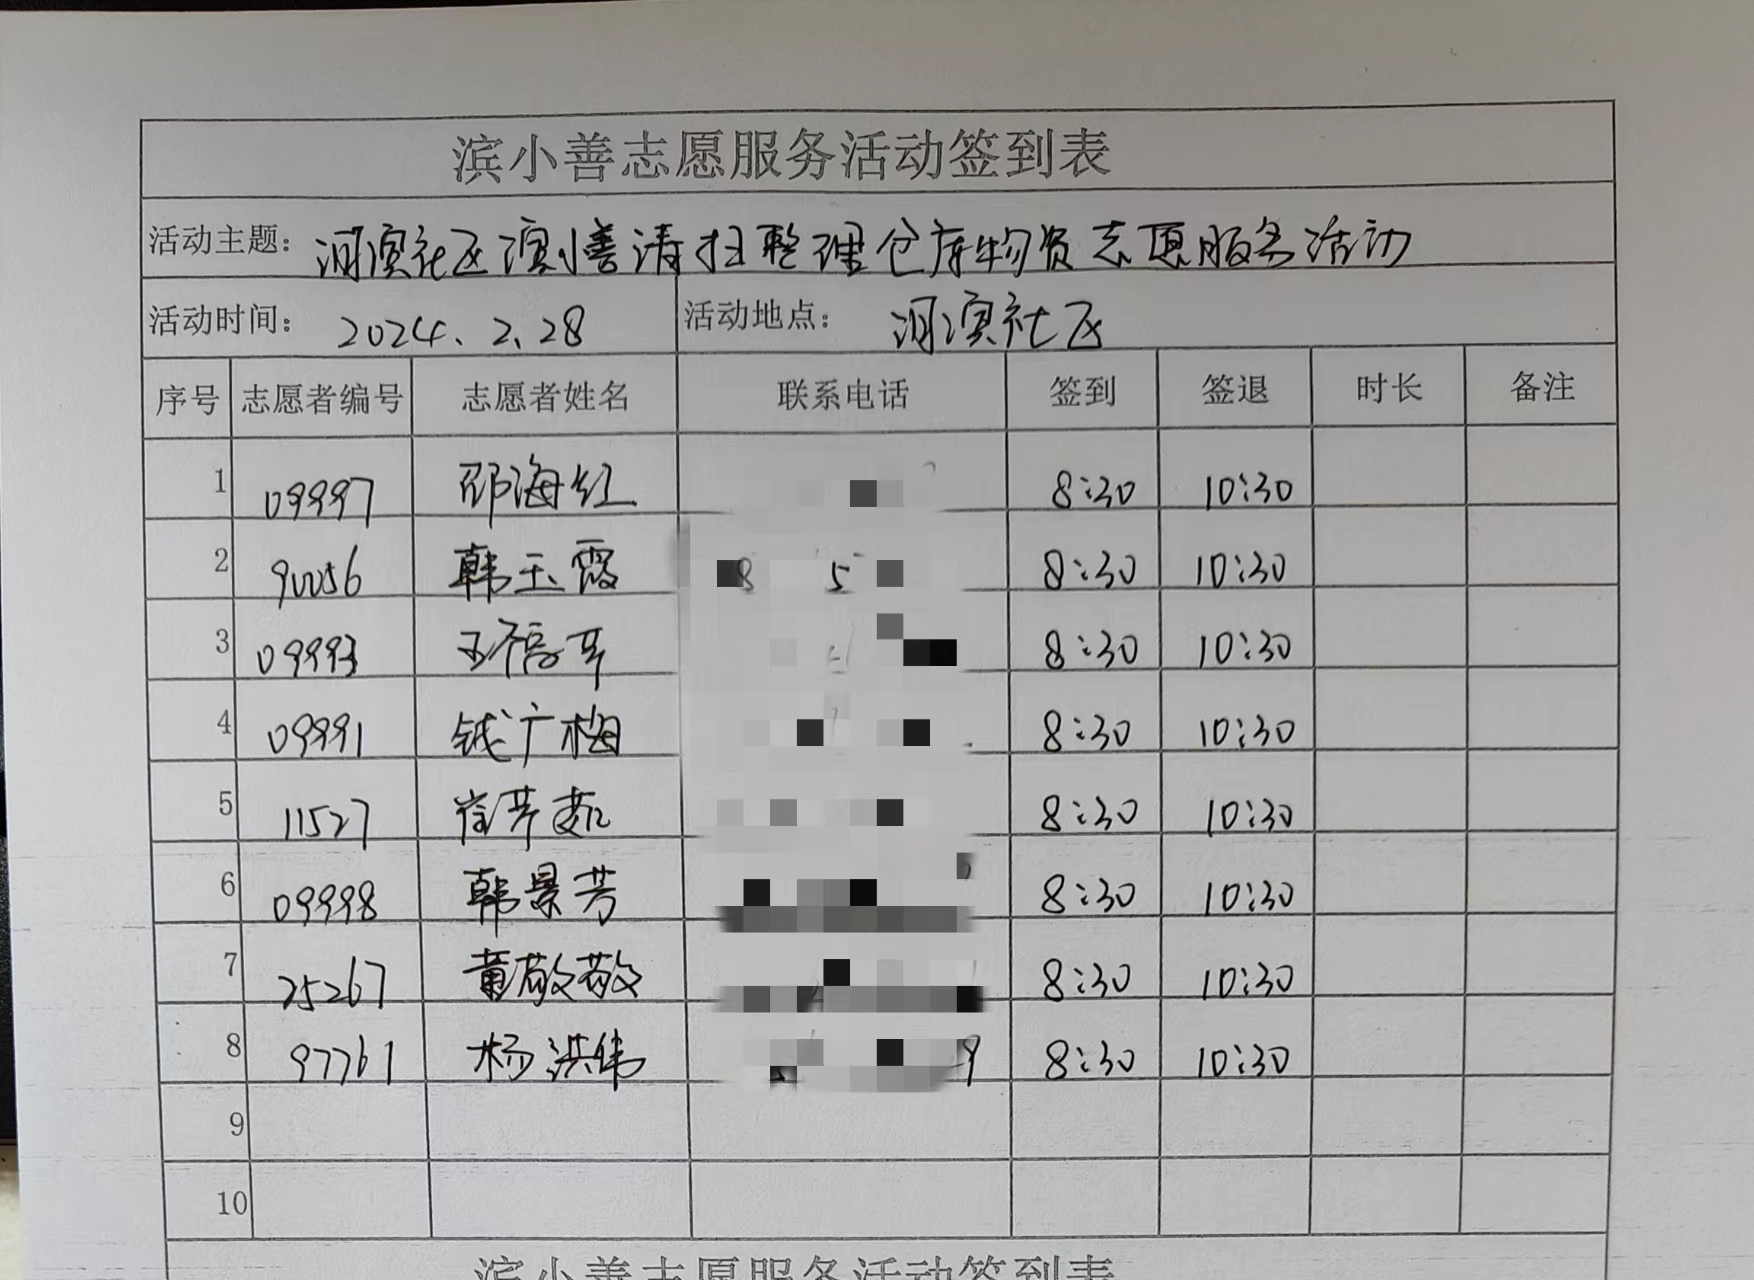 滨小善志愿服务活动签到表
活动主题： 河滨社区滨小善清扫整理仓库物资志愿服务活动
活动时间： 2024.2.28 活动地点： 河滨社区
序号 志愿者编号 志愿者姓名 联系电话 签到 签退 时长 备注
1 09997 邵海红 8:30 10:30
2 90056 韩玉霞 8 5 8:30 10:30
3 09993 王福平 8:30 10:30
4 09991 钱广梅 8:30 10:30
5 11527 8:30 10:30
6 09998 韩景芳 8:30 10:30
7 25267 黄敬敬 8:30 10:30
8 97761 杨洪伟 9 8:30 10:30
9
10
滨小善志愿服务活动签到表